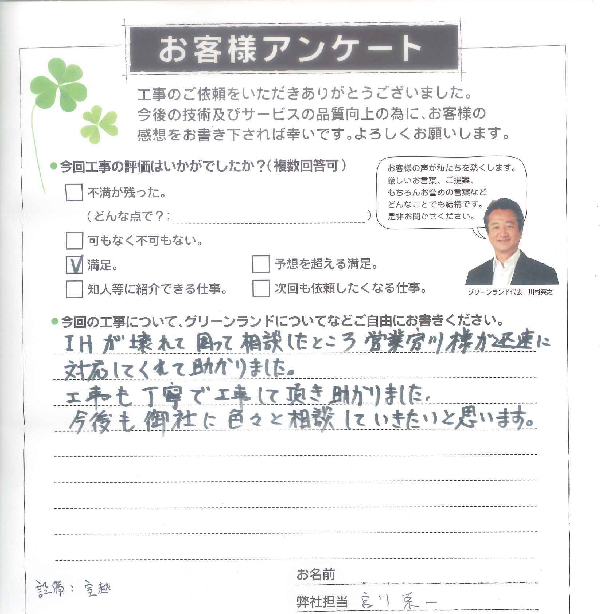 お客様アンケート
工事のご依頼をいただきありがとうございました。
今後の技術及びサービスの品質向上の為に、お客様の
感想をお書き下されば幸いです。よろしくお願いします。
●今回工事の評価はいかがでしたか?(複数回答可)
不満が残った。
(どんな点で?; )
可もなく不可もない。
満足。
予想を超える満足。
知人等に紹介できる仕事。
次回も依頼したくなる仕事。
お客様の声が私たちを築くします。
厳しいお言葉、ご提案、
もちろんお誉めの言葉など
どんなことでも結構です。
是非お聞かせください。
グリーンランド代表
●今回の工事について、グリーンランドについてなどご自由にお書きください。
IHが壊れて困って相談したところ営業宮川様が迅速に
対応してくれて助かりました。
工事も丁寧で工事して頂き助かりました。
今後も御社に色々と相談していきたいと思います。
お名前
設備:
弊社担当 宮川